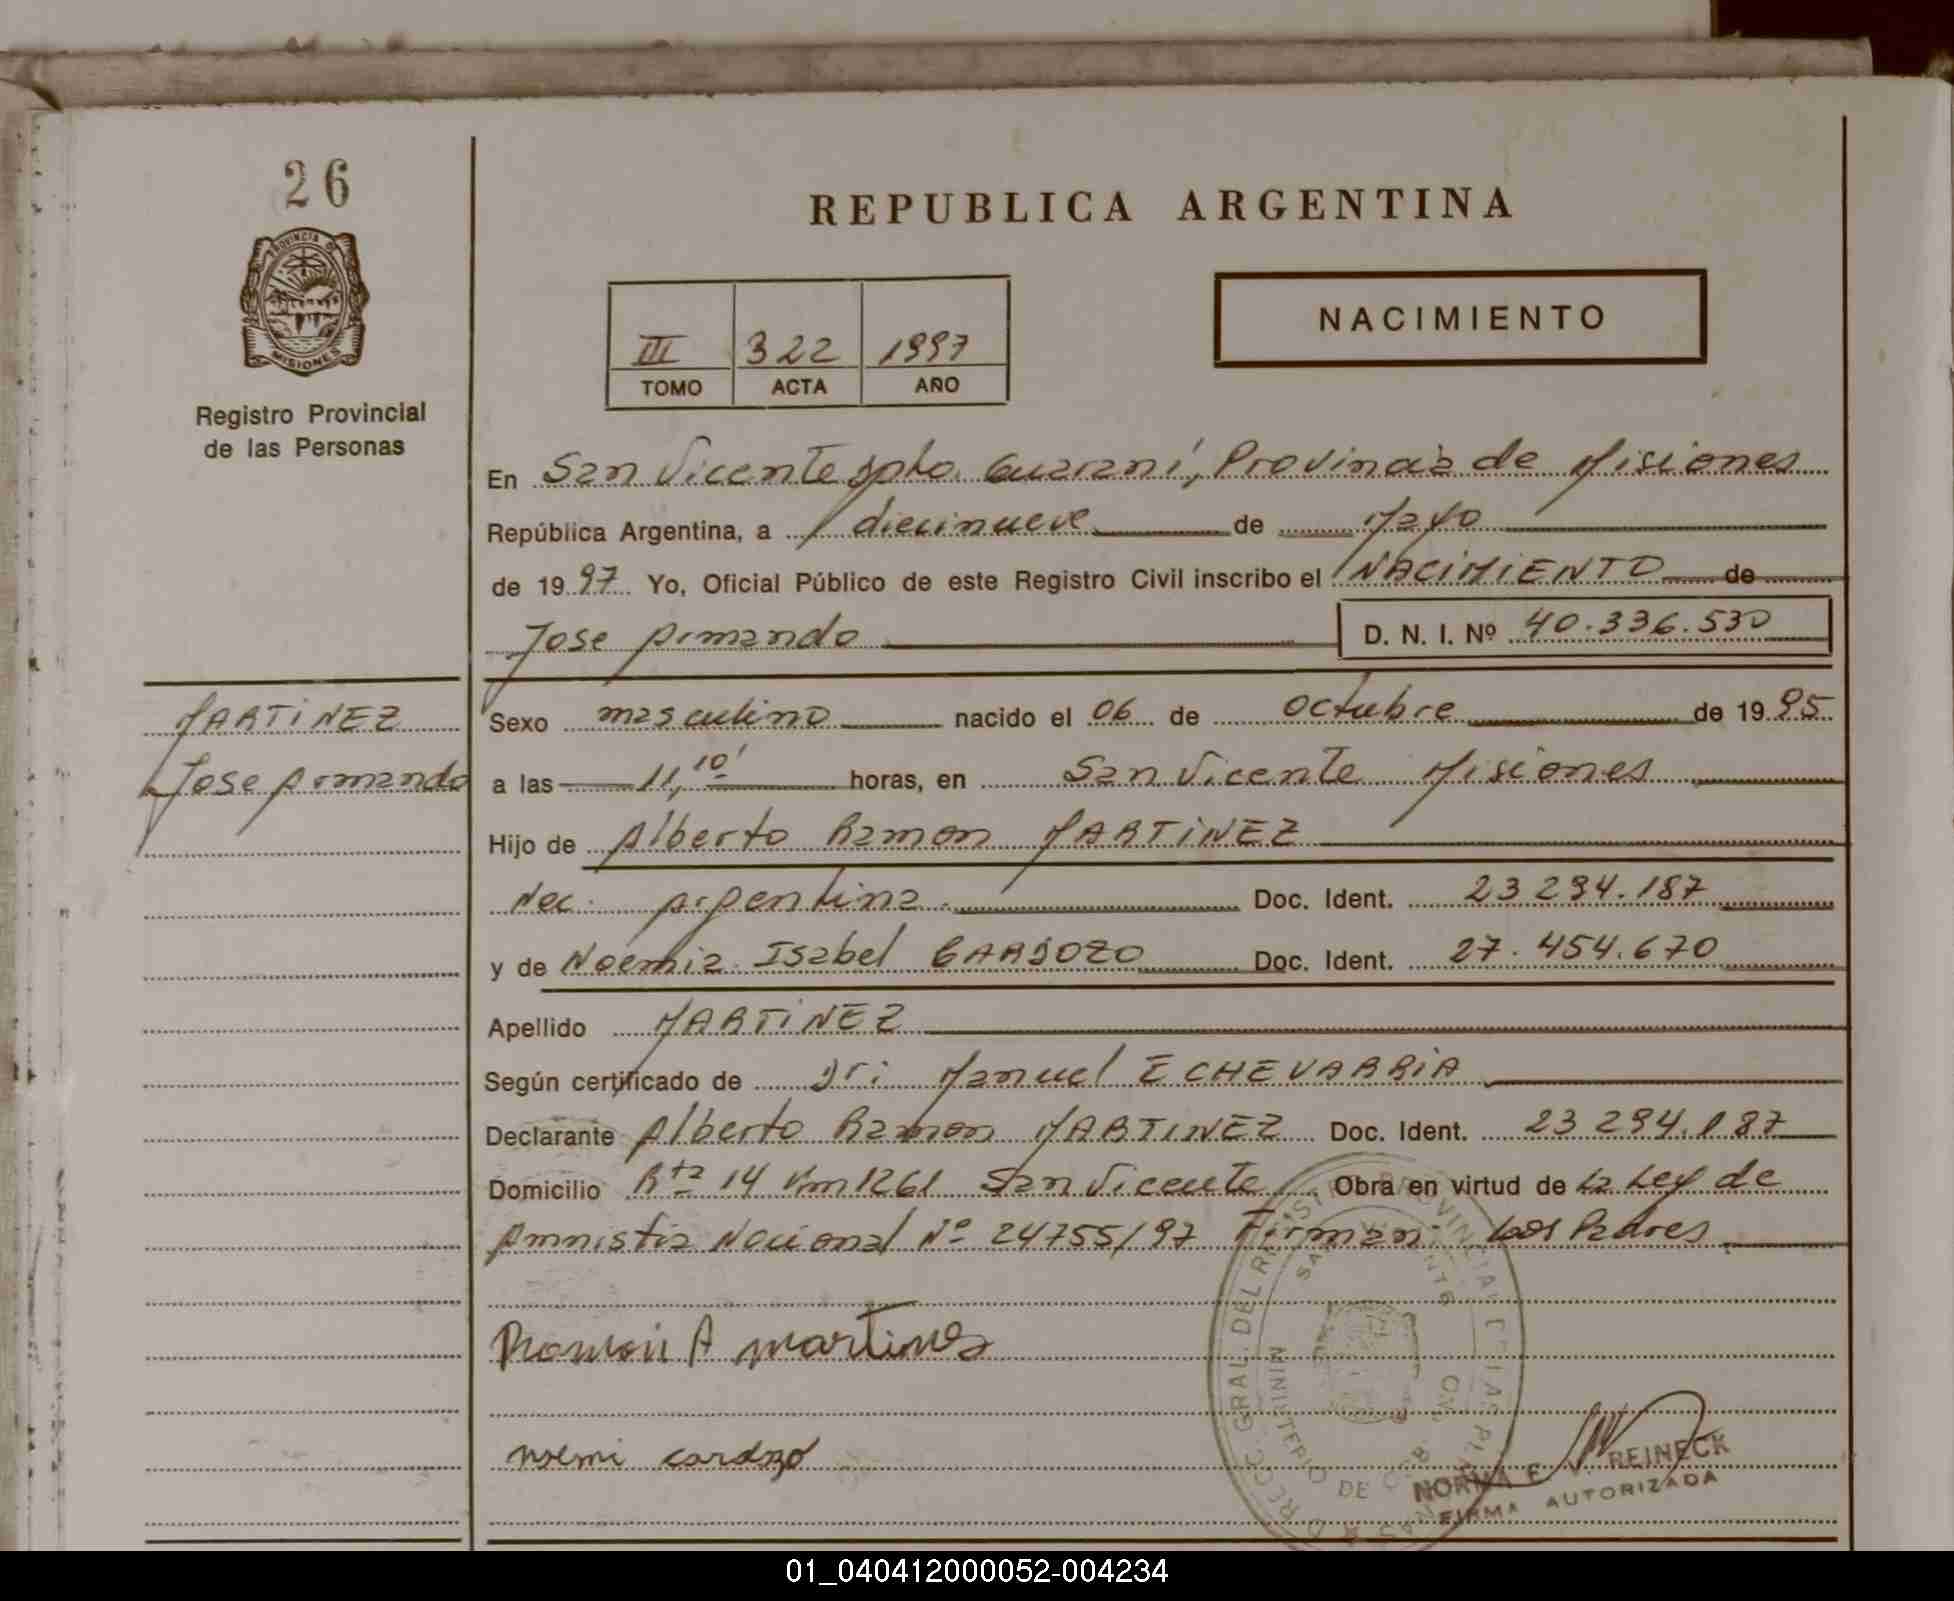 26
PROVINCIA DE
MISIONES
Registro Provincial
de las Personas
REPUBLICA ARGENTINA
III 322 1997
TOMO ACTA AÑO
NACIMIENTO
En San Vicente Dpto. Guaraní, Provincia de Misiones
República Argentina, a diecinueve de Mayo
de 1997 Yo, Oficial Público de este Registro Civil inscribo el NACIMIENTO de
Jose Armando D. N. I. Nº 40.336.530
MARTINEZ
Jose Armando
Sexo masculino nacido el 06 de Octubre de 1995
a las 11,10' horas, en San Vicente Misiones
Hijo de Alberto Ramon MARTINEZ
Nac. Argentina. Doc. Ident. 23 294.187
y de Noemia Isabel CARDOZO Doc. Ident. 27.454.670
Apellido MARTINEZ
Según certificado de Dr: Manuel ECHEVARRIA
Declarante Alberto Ramon MARTINEZ Doc. Ident. 23 294.187
Domicilio Rta 14 Km 1261 San Vicente Obra en virtud de La Ley de
Amnistia Nacional Nº 24755/97 Firman: Los Padres
Ramon A martines
noemi cardozo
NORMA E. REINECK
FIRMA AUTORIZADA
01_040412000052-004234